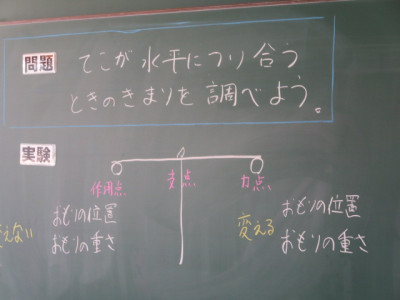 問題
てこが水平につり合う
ときのきまりを調べよう。
実験
作用点 支点 力点
えない おもりの位置
おもりの重さ
変える おもりの位置
おもりの重さ